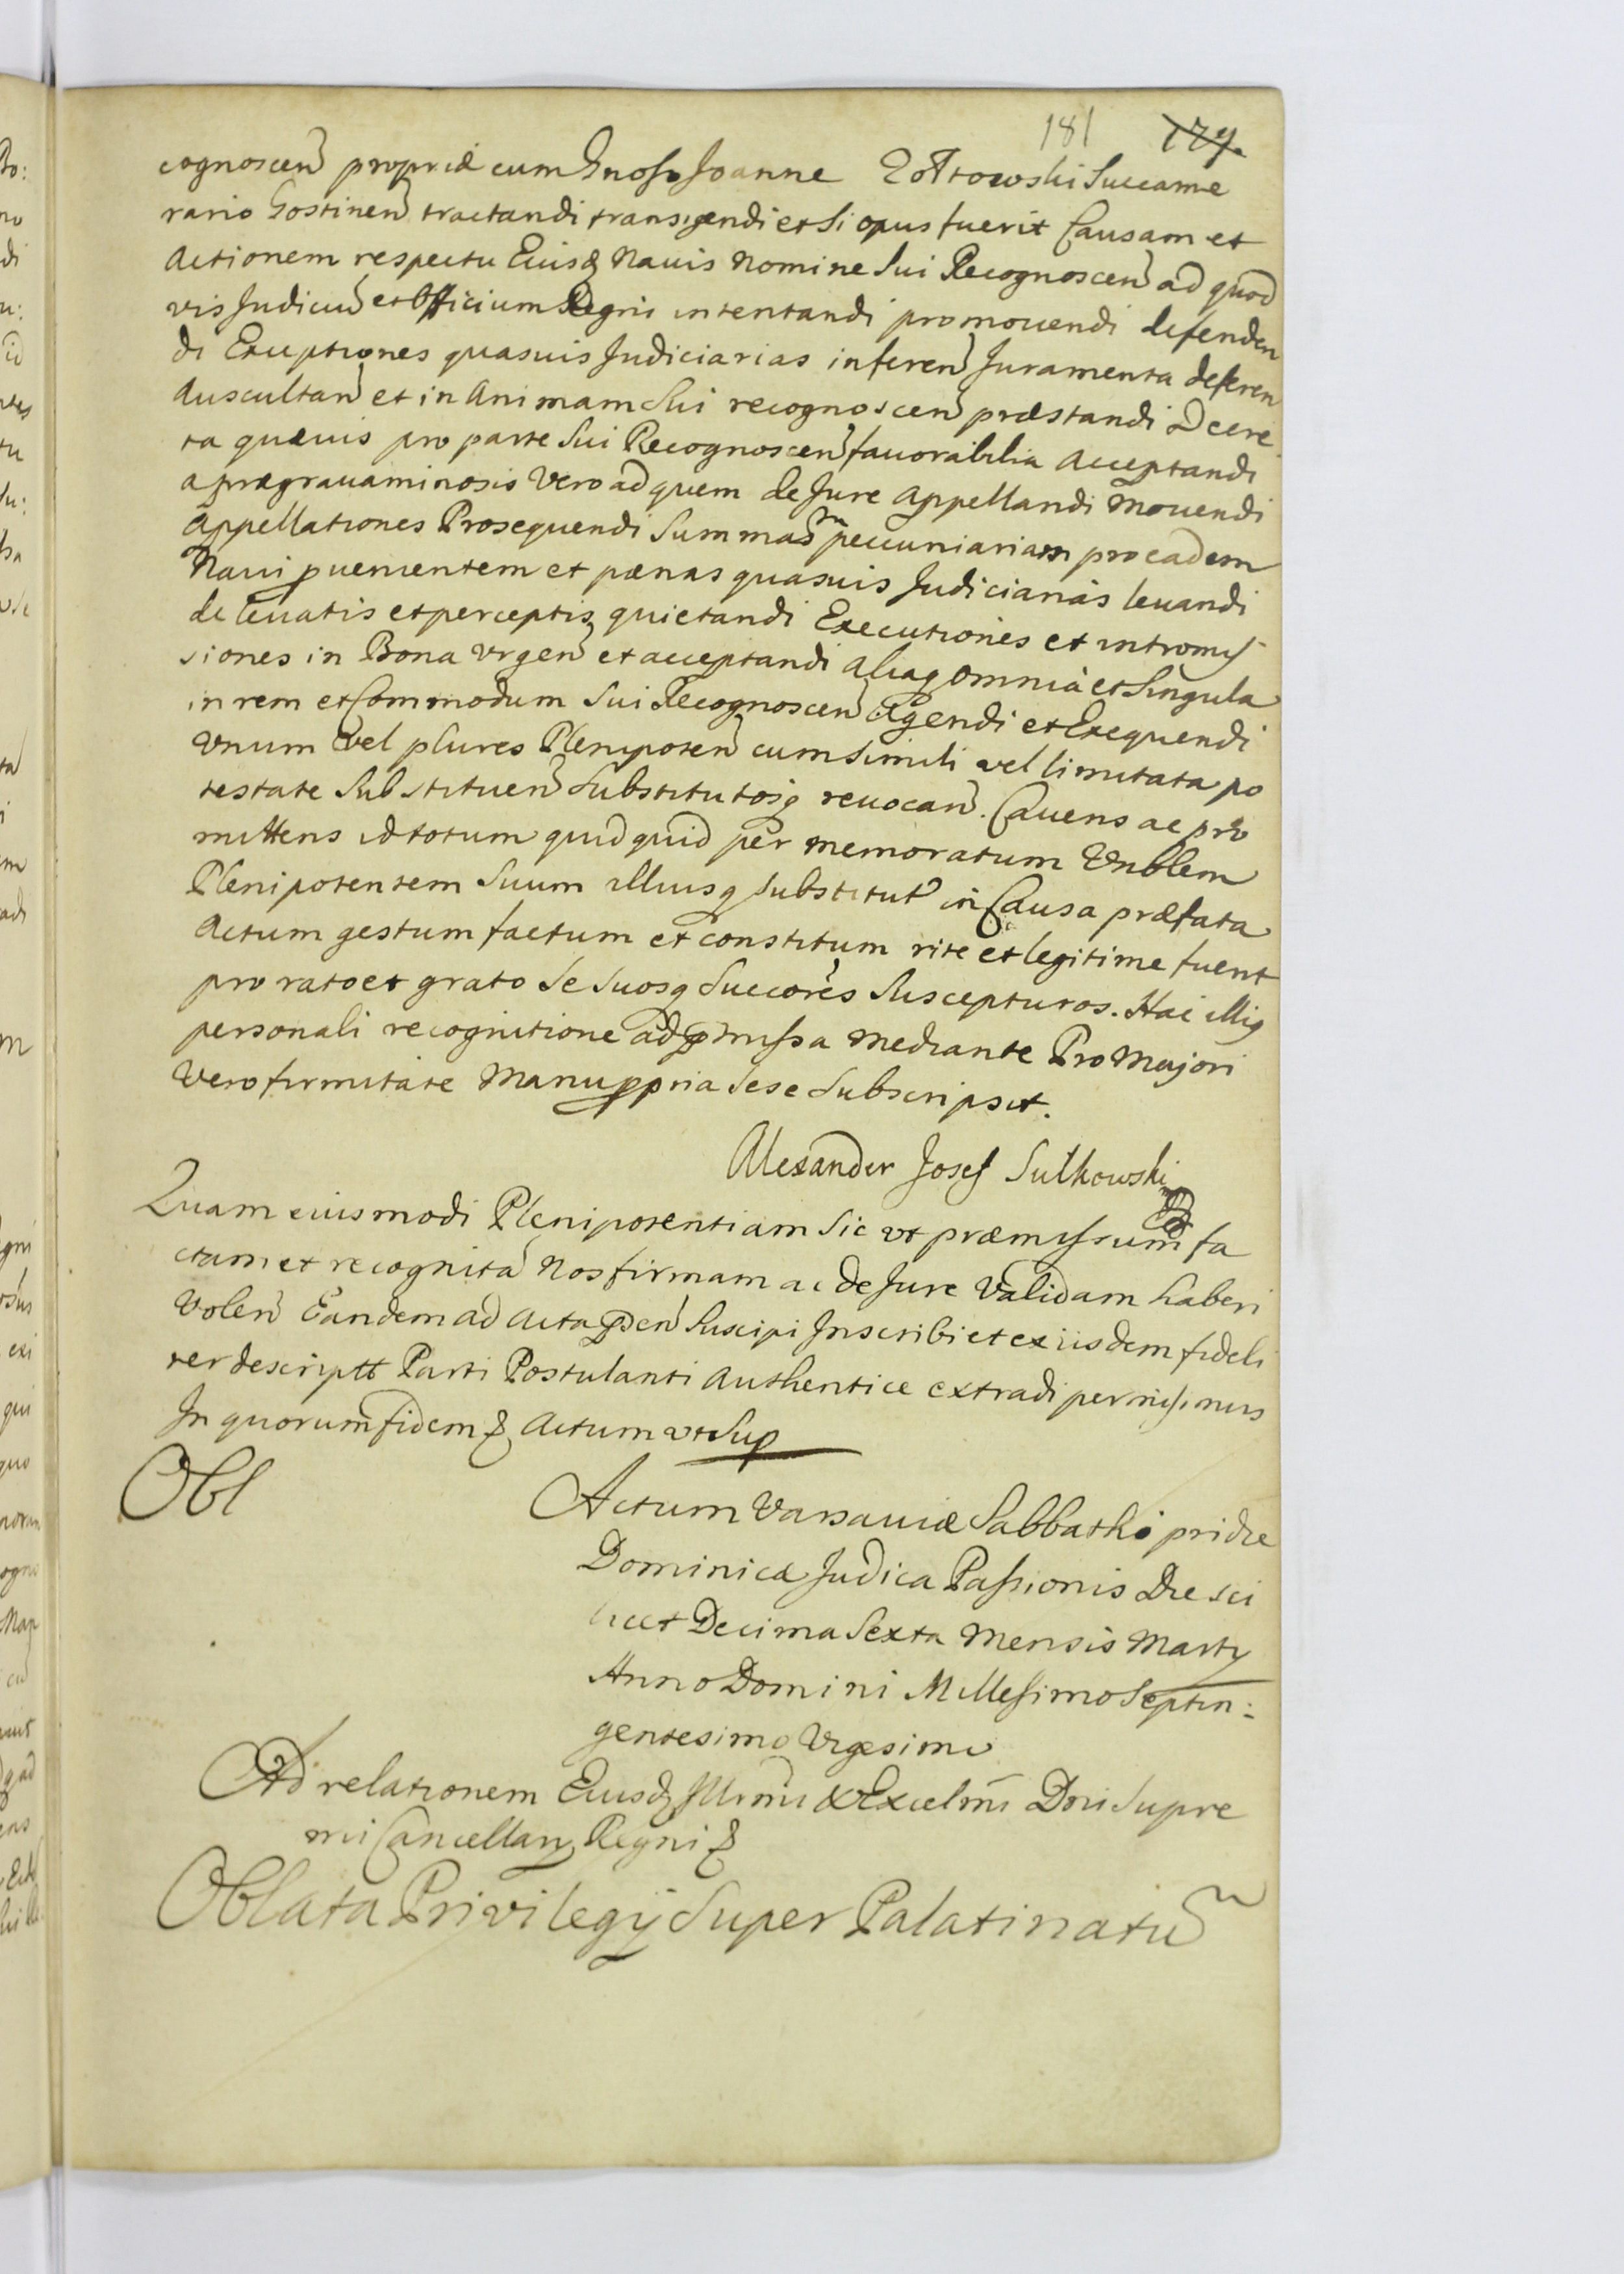 181 179.
cognoscen̄ propriæ cum Gnoso Joanne Zołtowski Succame
rario Gostinen̄ tractandi transigendi et si opus fuerit Causam et
Actionem respectu Eiusq Nauis Nomine Sui Recognoscen̄ ad quod
vis Judiciū et Officium Regni intentandi promouendi defenden
di Exceptiones quasuis Judiciarias inferen̄ Juramenta deferen
Auscultan̄ et in Animam Sui recognoscen̄ præstandi Decre
ta quævis pro parte Sui Recognoscen̄ fauorabilia Acceptandi
a prægrauaminosis Vero ad quem de Jure Appellandi Mouendi
Appellationes Prosequendi Summam peccuniariam pro eadem
Naui puenientem et pænas quasuis Judiciarias leuandi
de leuatis et perceptis quietandi Executiones et intromis
siones in Bona vrgen̄ et acceptandi aliaq Omnia et Singula
in rem et Commodum Sui Recognoscen̄ Agendi et Exequendi
Vnum Vel plures Plenipoten̄ cum simili vel limitata po
testate Substituen̄ Substitutosq reuocan̄. Cauens ac pro
mittens id totum quidquid per memoratum Gnblem
Plenipotentem Suum illiusq substitut in Causa præfata
Actum gestum factum et constitum rite et legitime fuerit
pro rato et grato Se Suosq Succores Suscepturos. Hac illiq
personali recognitione ad pmissa Mediante Pro Majori
Vero firmitate Manu ppria sese Subscripsit.
Alexander Josef Sulkowski
Quam eiusmodi Plenipotentiam Sic vt præmissum fa
ctam et recognitā Nos firmam ac de Jure Validam haberi
Volen̄ Eandem ad Acta pden̄ Suscipi Inscribi et ex iisdem fideli
ter descriptt Parti Postulanti Authentice extradi permisimus
In quorum fidem & Actum vt Sup
Obl
Actum Varsauiæ Sabbatho pridie
Dominicæ Judica Passionis Die sci
licet Decima Sexta Mensis Martij
Anno Domini Millesimo Septin:
gentesimo Vigesimo
Ad relationem Eiusd Illrmi & Excelmi Dni Supre
mi Cancellarij Regni &
Oblata Privilegij Super Palatinatū